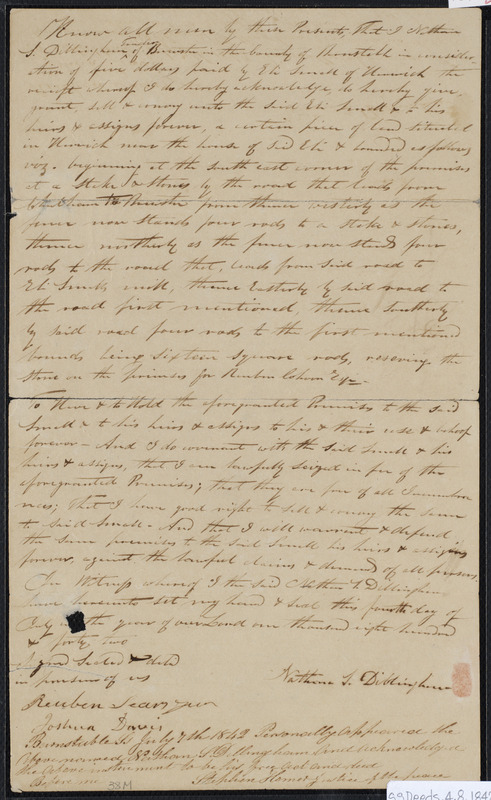 Know all men by these Presents, that I Nathan
S. Dillingham Junior of Brewster in the County of Barnstable in consider-
ation of five dollars paid by Eli Small of Harwich the
receipt whereof I do hereby acknowledge, do hereby give,
grant, sell & convey unto the Said Eli Small & to his
heirs & assigns forever, a certain piece of land situated
in Harwich near the house of Sd Eli & bounded as follows
viz. beginning at the south east corner of the premises
at a Stake & Stones by the road that leads from
to Brewster from thence westerly as the
fence now stands four rods to a Stake & Stones,
thence northerly as the fence now stands four
rods to the road that leads from Said road to
Eli Smalls mill, thence Easterly by said road to
the road first mentioned, thence Southerly
by said road four rods to the first mentioned
bounds being Sixteen square rods, reserving the
Store on the premises for Reuben Cahoon
To Have & to Hold the aforegranted Premises to the said
Small & to his heirs & assigns to his & their use & behoof
forever - And I do covenant with the Said Small & his
heirs & assigns, that I am lawfully Seized in fee of the
aforegranted Premises; that they are free of all Incumbran
nces; that I have good right to sell & convey the same
to said Small - And that I will warrant & defend
the same premises to the said Small his heirs & assigns
forever, against the lawful claims & demands of all persons.
In Witness whereof I the said Nathan S. Dillingham
have hereunto set my hand & seal this fourth day of
the year of our Lord one thousand eight hundred
& forty two
Signed Sealed & deld
in presence of us
Nathan S. Dillingham
Reuben Sears
Joshua Davis
Barnstable Ss. July 7th 1842 Personally appeared the
above named Nathan S. Dillingham and acknowledged
the above instrument to be his free act and deed
Before me Stephen Homer Justice of the peace
38M